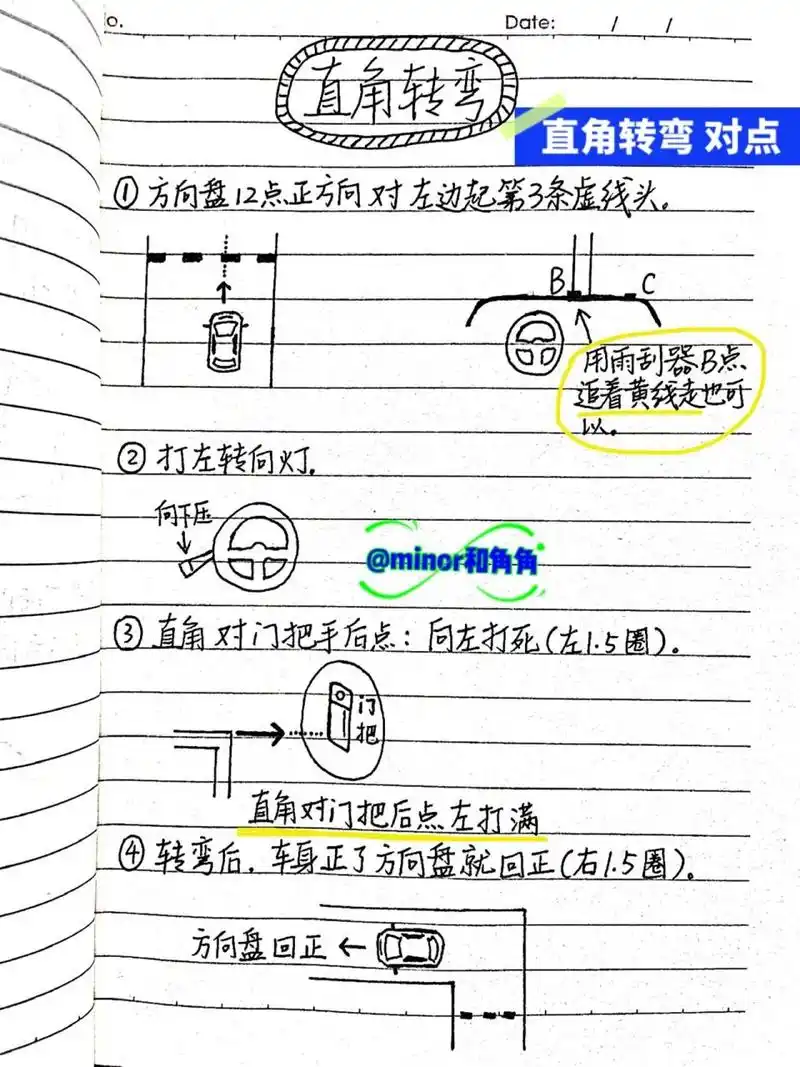 o.
Date: / /
直角转弯
直角转弯 对点
① 方向盘12点正方向对左边起第3条虚线头。
B C
用雨刮器B点
追着黄线走也可
以。
② 打左转向灯.
向下压
@minor和角角
③ 直角对门把手后点：向左打死(左1.5圈)。
门
把
直角对门把后点左打满
④ 转弯后.车身正了方向盘就回正(右1.5圈)。
方向盘回正